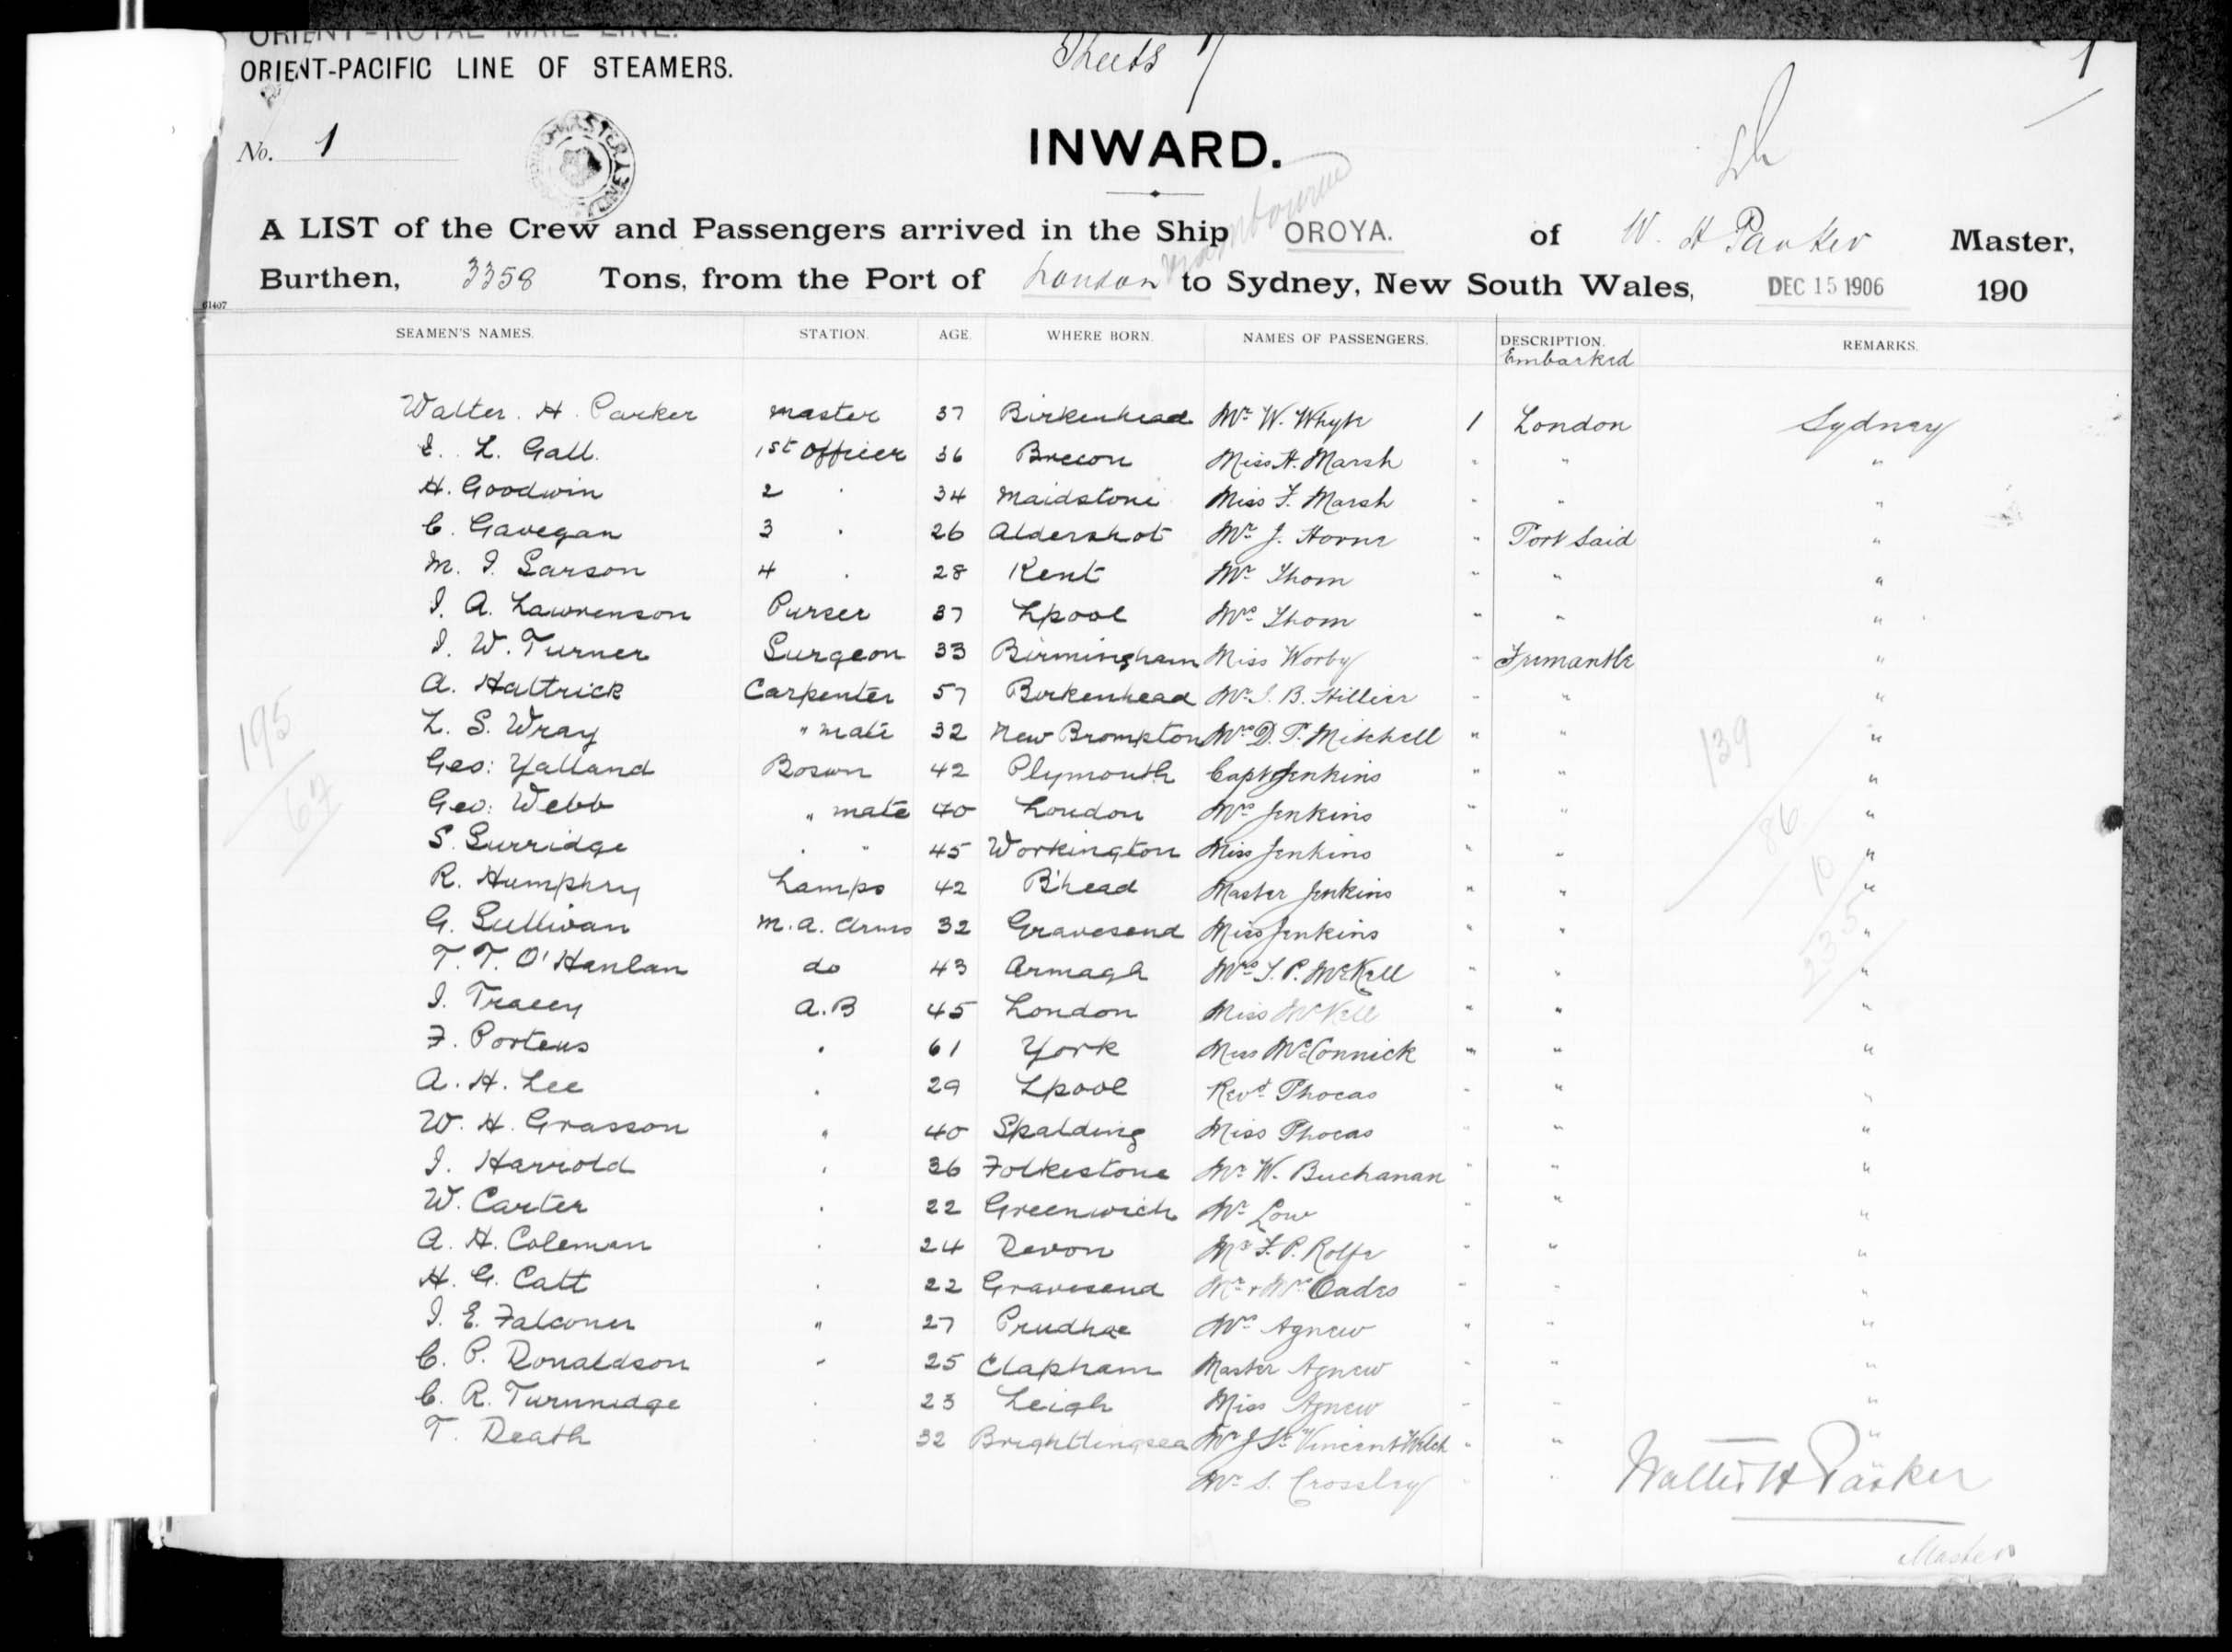 ORIENT-ROYAL MAIL LINE.
ORIENT-PACIFIC LINE OF STEAMERS.
Sheets 7
1
No. 1
INWARD.
A LIST of the Crew and Passengers arrived in the Ship OROYA. of W. H Parker Master,
Burthen, 3358 Tons, from the Port of London to Sydney, New South Wales, DEC 15 1906 190
61407
SEAMEN'S NAMES. STATION. AGE. WHERE BORN. NAMES OF PASSENGERS. DESCRIPTION. REMARKS.
Embarked
Walter. H. Parker Master 37 Birkenhead Mr W. Whyte 1 London Sydney
E. L. Gall. 1st Officer 36 Brecon Miss H. Marsh " " "
H. Goodwin 2 " 34 Maidstone Miss F. Marsh " " "
C. Gavegan 3 " 26 Aldershot Mr J. Horne " Port Said "
M. I. Sarson 4 " 28 Kent Mr Thom " " "
I. A. Lawrenson Purser 37 Lpool Mrs Thom " " "
I. W. Turner Surgeon 33 Birmingham Miss Worby " Fremantle "
A. Haltrick Carpenter 57 Birkenhead Mr J. B. Hillier " " "
L. S. Wray " mate 32 New Brompton Mrs D. T. Mitchell " " "
Geo: Yalland Bosun 42 Plymouth Capt Jenkins " " "
Geo: Webb " mate 40 London Mrs Jenkins " " "
S. Surridge " " 45 Workington Miss Jenkins " " "
R. Humphry Lamps 42 B'head Master Jenkins " " "
G. Sullivan M. A. Arms 32 Gravesend Miss Jenkins " " "
T. T. O'Hanlan do 43 Armagh Mrs J. P. McKell " " "
I. Tracey A.B 45 London Miss McKell " " "
F. Porteus " 61 York Miss McConnick " " "
A. H. Lee " 29 Lpool Revd Phocas " " "
W. H. Grasson " 40 Spalding Miss Phocas " " "
I. Harrold " 36 Folkestone Mr W. Buchanan " " "
W. Carter " 22 Greenwich Mr Low " " "
A. H. Coleman " 24 Devon Mr F. P. Rolfe " " "
H. G. Catt " 22 Gravesend Mr & Mrs Oades " " "
I. E. Falconer " 27 Prudhoe Mrs Agnew " " "
C. P. Donaldson " 25 Clapham Master Agnew " " "
C. R. Turnnidge " 23 Leigh Miss Agnew " " "
T. Death " 32 Brightlingsea Mr J St Vincent Welch " " "
Mr S. Crossley " "
Walter H Parker
Master
195
67
139
86
10
235